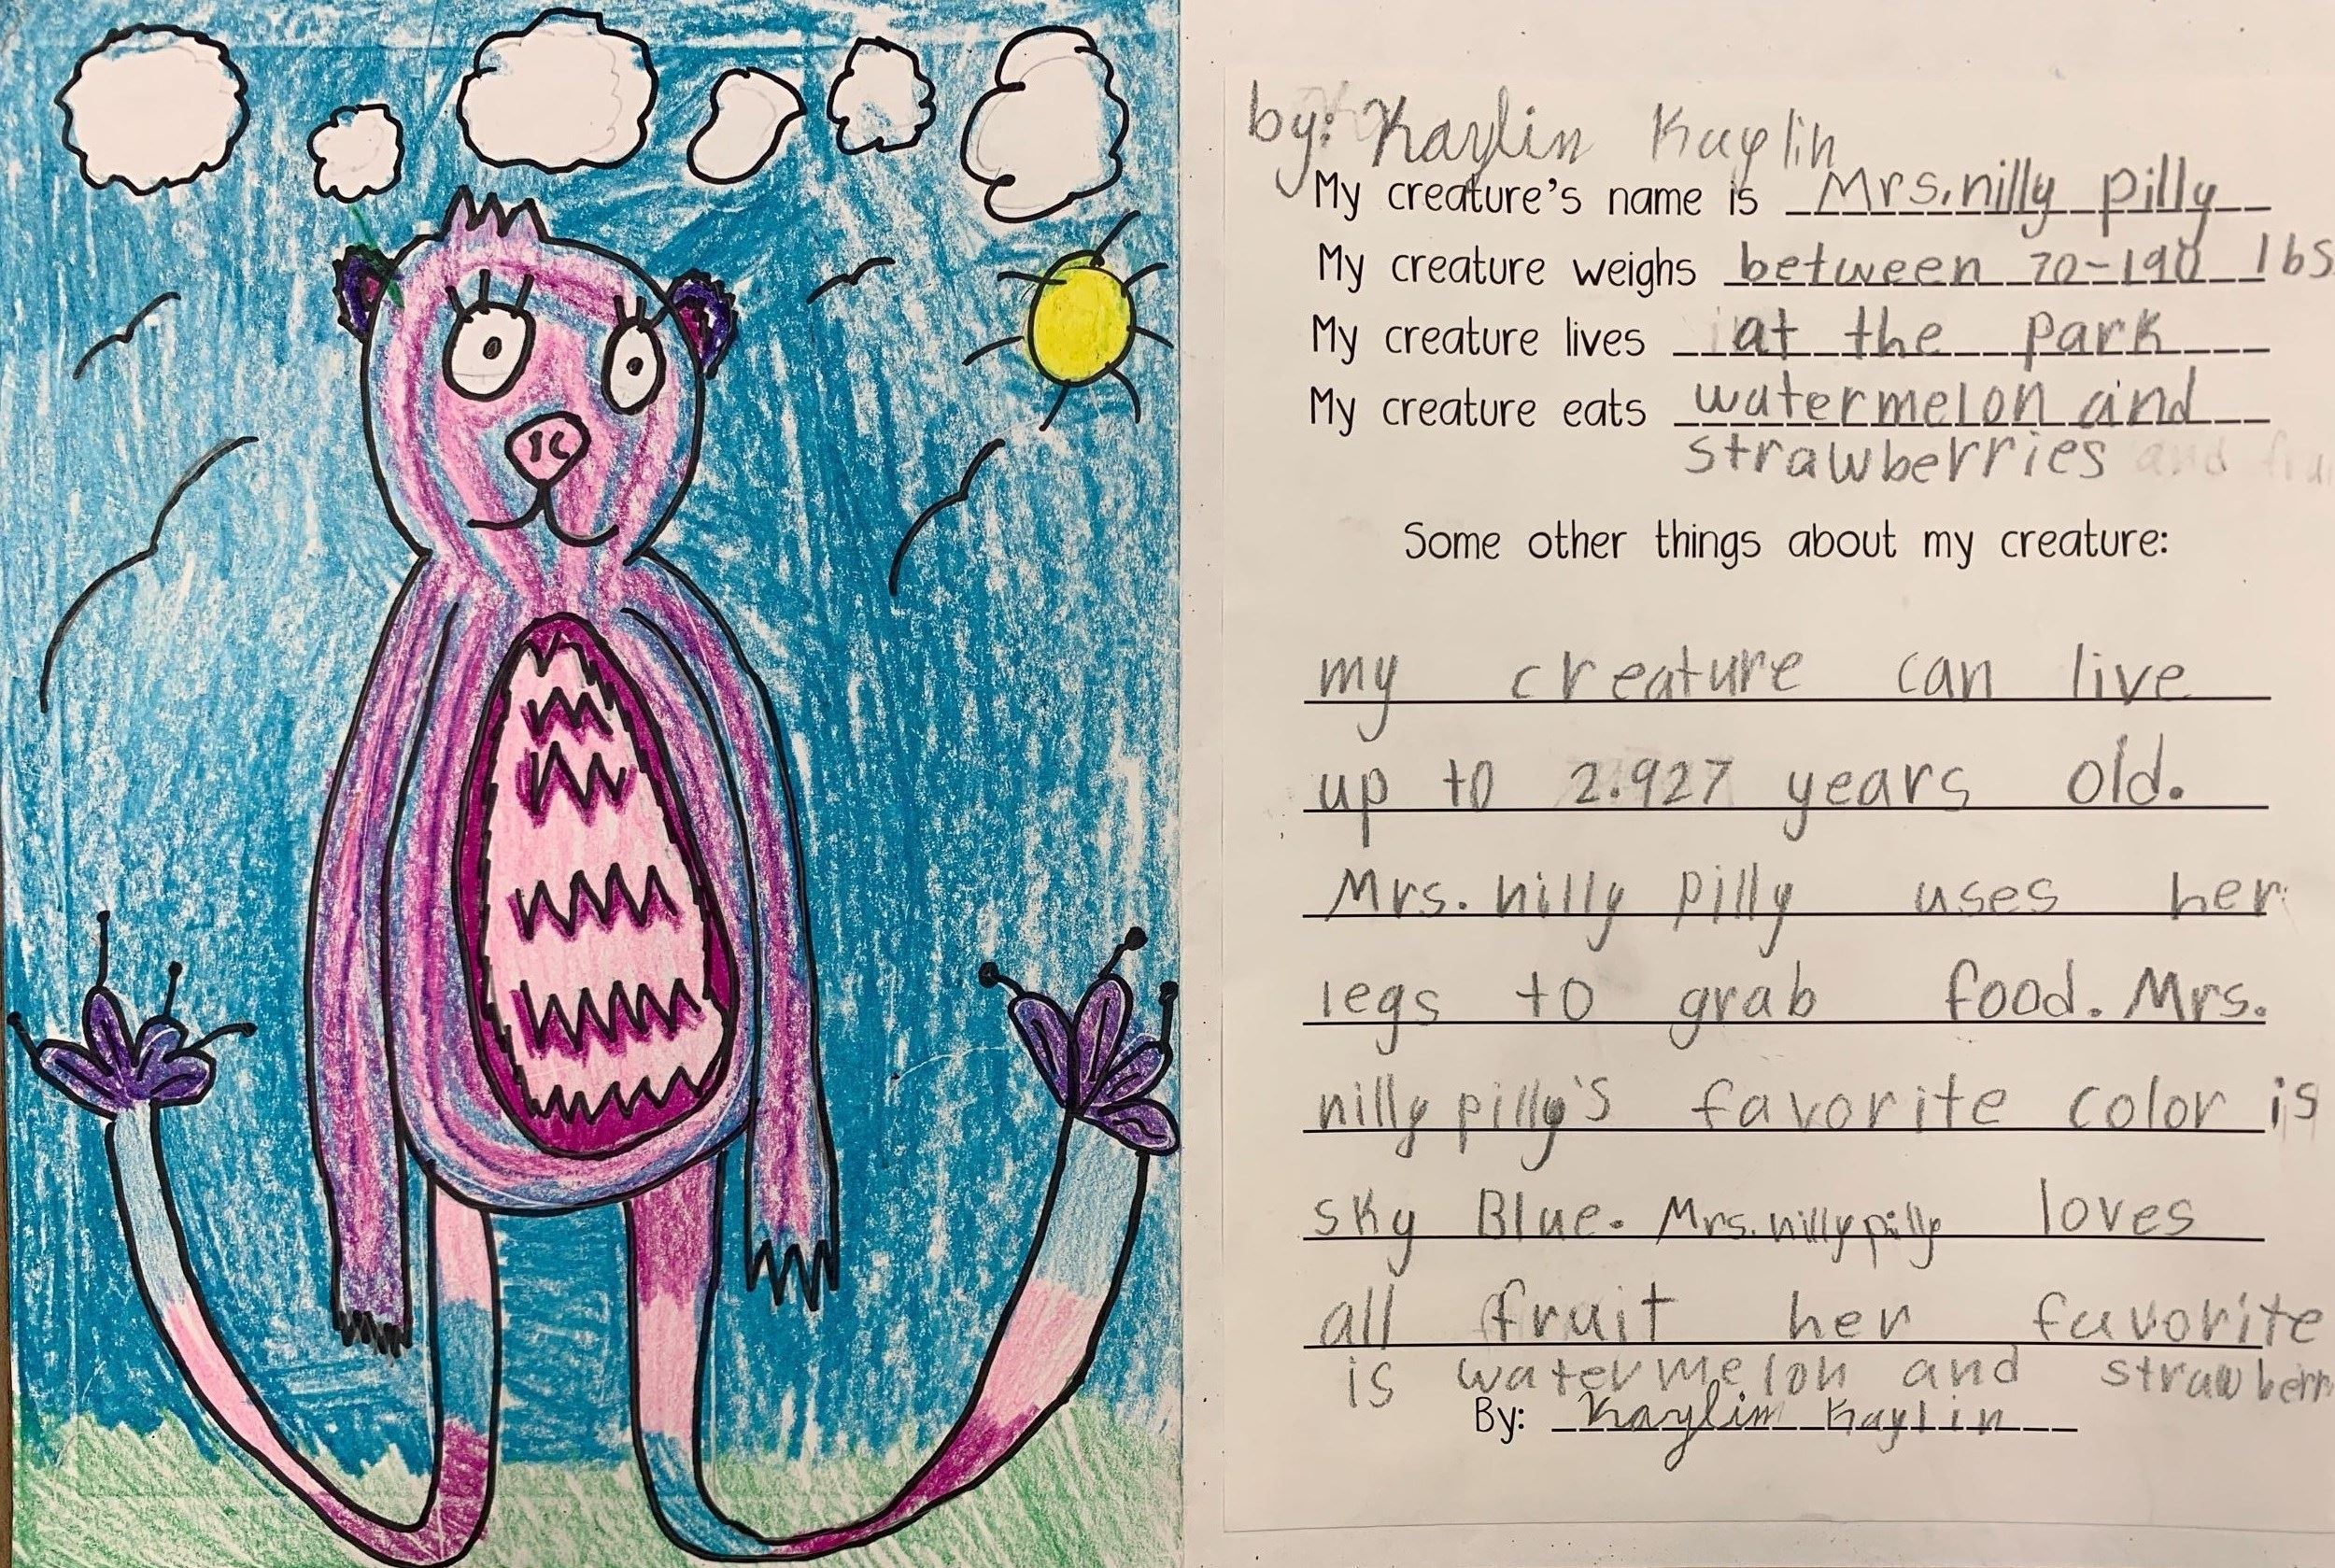 by: Kaylin Kaylin
My creature's name is Mrs. nilly pilly
My creature weighs between 70-190 lbs
My creature lives at the park
My creature eats watermelon and
strawberries and
Some other things about my creature:
my creature can live
up to 2.927 years old.
Mrs. nilly pilly uses her
legs to grab food. Mrs.
nilly pilly's favorite color is
sky Blue. Mrs. nilly pilly loves
all fruit her favorite
is watermelon and strawberr
By: Kaylin Kaylin